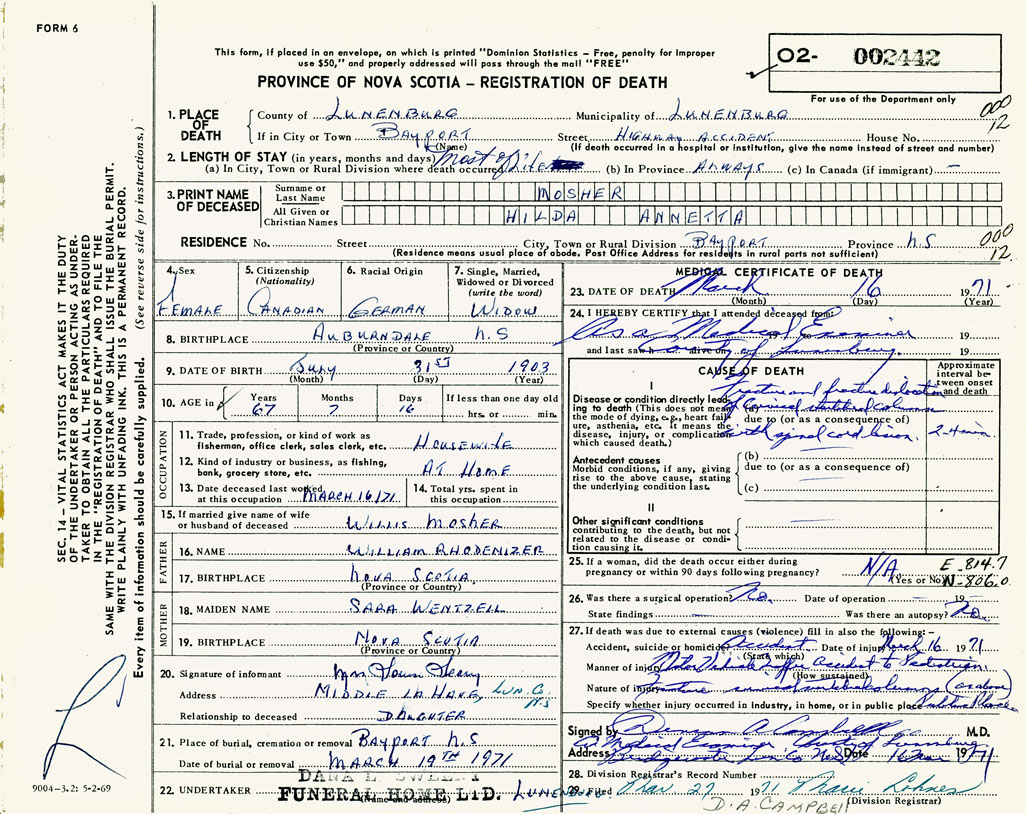 FORM 6
This form, if placed in an envelope, on which is printed "Dominion Statistics – Free, penalty for improper
use $50," and properly addressed will pass through the mail "FREE"
PROVINCE OF NOVA SCOTIA – REGISTRATION OF DEATH
02- 002442
For use of the Department only
000
12
1. PLACE OF DEATH
County of LUNENBURG Municipality of LUNENBURG
If in City or Town BAYPORT Street HIGHWAY ACCIDENT House No.
(Name) (If death occurred in a hospital or institution, give the name instead of street and number)
2. LENGTH OF STAY (in years, months and days)
(a) In City, Town or Rural Division where death occurred Most of life (b) In Province ALWAYS (c) In Canada (if immigrant) –
3. PRINT NAME OF DECEASED
Surname or Last Name MOSHER
All Given or Christian Names HILDA ANNETTA
RESIDENCE No. Street City, Town or Rural Division BAYPORT Province N.S
000
12
(Residence means usual place of abode. Post Office Address for residents in rural parts not sufficient)
4. Sex FEMALE
5. Citizenship (Nationality) CANADIAN
6. Racial Origin GERMAN
7. Single, Married, Widowed or Divorced (write the word) WIDOW
8. BIRTHPLACE AUBURNDALE N.S
(Province or Country)
9. DATE OF BIRTH JULY 31ST 1903
(Month) (Day) (Year)
10. AGE in Years 67 Months 7 Days 16 If less than one day old hrs. or min.
OCCUPATION
11. Trade, profession, or kind of work as fisherman, office clerk, sales clerk, etc. HOUSEWIFE
12. Kind of industry or business, as fishing, bank, grocery store, etc. AT HOME
13. Date deceased last worked at this occupation MARCH 16/71
14. Total yrs. spent in this occupation
15. If married give name of wife or husband of deceased WILLIS MOSHER
FATHER
16. NAME WILLIAM RHODENIZER
17. BIRTHPLACE NOVA SCOTIA
(Province or Country)
MOTHER
18. MAIDEN NAME SARA WENTZELL
19. BIRTHPLACE NOVA SCOTIA
(Province or Country)
20. Signature of informant Mrs
Address MIDDLE LAHAVE, LUN. CO. N.S
Relationship to deceased DAUGHTER
21. Place of burial, cremation or removal BAYPORT N.S
Date of burial or removal MARCH 19TH 1971
22. UNDERTAKER DANA L. SWEENY
FUNERAL HOME LTD. LUNENBURG
(Name and address)
MEDICAL CERTIFICATE OF DEATH
23. DATE OF DEATH March 16 1971
(Month) (Day) (Year)
24. I HEREBY CERTIFY that I attended deceased from:
As a Medical Examiner 19
and last saw h alive on County of Lunenburg. 19
CAUSE OF DEATH
Approximate interval between onset and death
I
Disease or condition directly leading to death (This does not mean the mode of dying, e.g., heart failure, asthenia, etc. It means the disease, injury, or complication which caused death.)
(a) fracture and fracture dislocation of cervical column
due to (or as a consequence of)
with spinal cord lesion. 2-4 min.
Antecedent causes
Morbid conditions, if any, giving rise to the above cause, stating the underlying condition last.
(b)
due to (or as a consequence of)
(c)
II
Other significant conditions contributing to the death, but not related to the disease or condition causing it.
25. If a woman, did the death occur either during pregnancy or within 90 days following pregnancy? N/A
(Yes or No)
E-814.7
N-806.0
26. Was there a surgical operation? No. Date of operation 19
State findings Was there an autopsy? No.
27. If death was due to external causes (violence) fill in also the following: –
Accident, suicide or homicide Accident Date of injury March 16 1971
(State which)
Manner of injury Motor Vehicle Traffic Accident to Pedestrian
(How sustained)
Nature of injury Fracture (as above)
Specify whether injury occurred in industry, in home, or in public place Public Place
Signed by A Campbell M.D.
Address A Medical Examiner County of Lunenburg
Bridgewater Lun Co N.S. Date 16 Mar 1971
28. Division Registrar's Record Number
29. Filed Mar. 27 1971 Marie Lohnes
(Division Registrar)
D.A. CAMPBELL
SEC. 14 – VITAL STATISTICS ACT MAKES IT THE DUTY
OF THE UNDERTAKER OR PERSON ACTING AS UNDER-
TAKER TO OBTAIN ALL THE PARTICULARS REQUIRED
IN THE "REGISTRATION OF DEATH" AND TO FILE THE
SAME WITH THE DIVISION REGISTRAR WHO SHALL ISSUE THE BURIAL PERMIT.
WRITE PLAINLY WITH UNFADING INK. THIS IS A PERMANENT RECORD.
Every item of information should be carefully supplied. (See reverse side for instructions.)
9004-3.2: 5-2-69